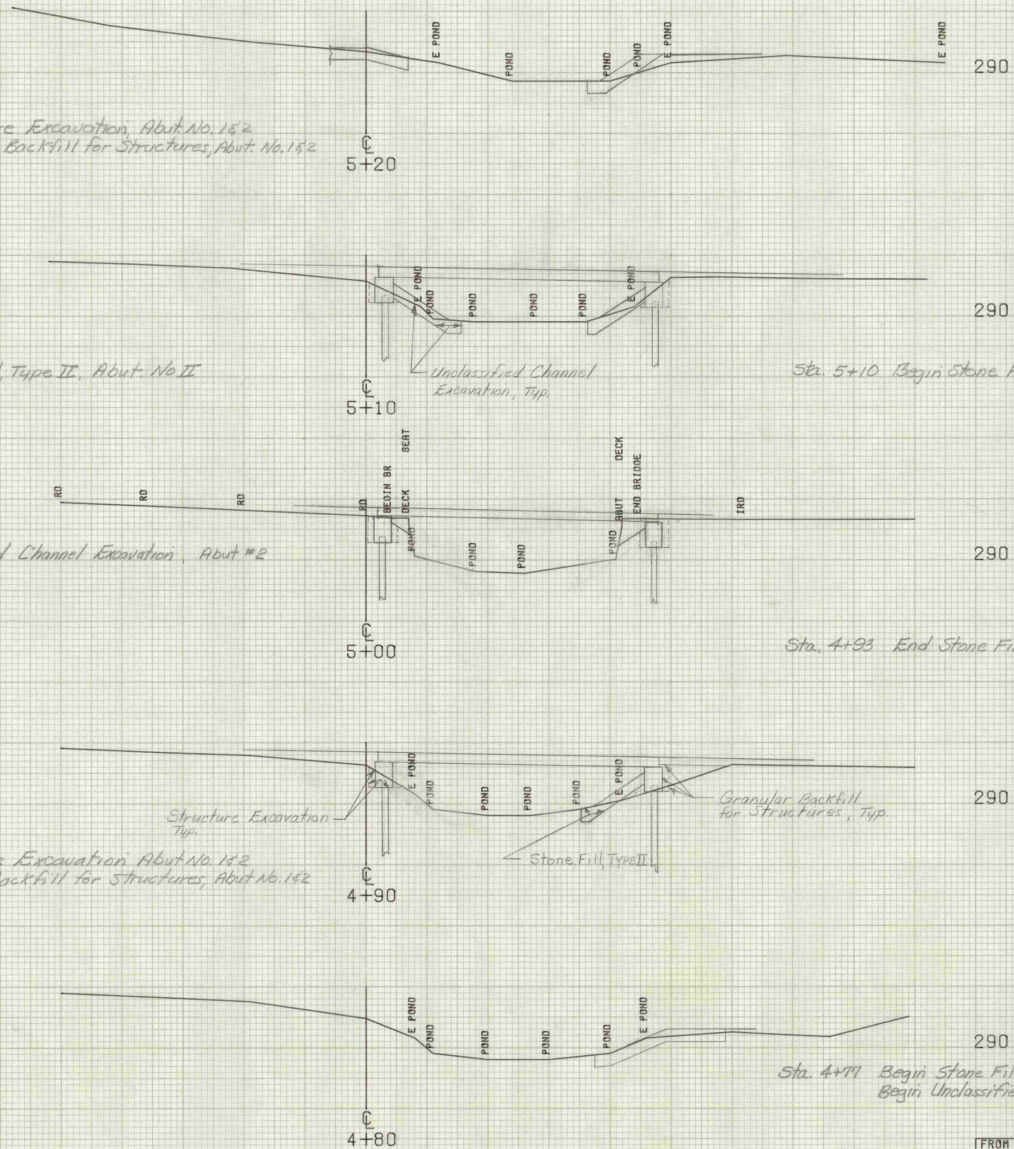 E POND
POND
POND
POND
E POND
E POND
290
Excavation, Abut. No. 1&2
Backfill for Structures, Abut. No. 1&2
℄
5+20
E POND
POND
POND
POND
POND
E POND
290
Type II, Abut No II
Unclassified Channel
Excavation, Typ.
Sta. 5+10 Begin Stone
℄
5+10
RD
RD
RD
RD
BEGIN BR
DECK
SEAT
POND
POND
POND
POND
ABUT
DECK
END BRIDGE
IRD
290
Channel Excavation, Abut #2
℄
5+00
Sta. 4+93 End Stone
E POND
POND
POND
POND
POND
E POND
290
Structure Excavation
Typ.
Granular Backfill
for Structures, Typ.
Stone Fill, TYPE II
Excavation Abut No. 1&2
Backfill for Structures, Abut No. 1&2
℄
4+90
E POND
POND
POND
POND
POND
E POND
290
Sta. 4+77 Begin Stone
Begin
℄
4+80
FROM